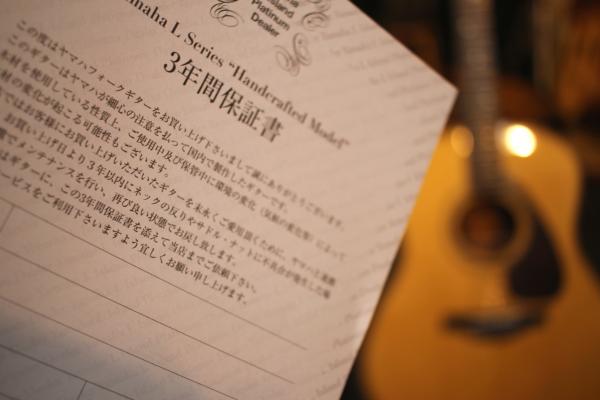 Island
Platinum
Dealer
Yamaha L Series "Handcrafted Model"
3年間保証書
この度はヤマハフォークギターをお買い上げ下さいまして誠にありがとうございます。
このギターはヤマハが細心の注意を払って国内で製作したギターです。
木材を使用している性質上、ご使用中及び保管中に環境の変化（気候の変化等）によって
材の変化が起こる可能性もございます。
ではお客様にお買い上げいただいたギターを末永くご愛用頂くために、ヤマハと
お買い上げ日より3年以内にネックの反りやサドル・ナットに不具合が発生した場
でメンテナンスを行い、再び良い状態でお戻し致します。
はギターに、この3年間保証書を添えて当店までご依頼下さい。
ービスをご利用下さいますよう宜しくお願い申し上げます。